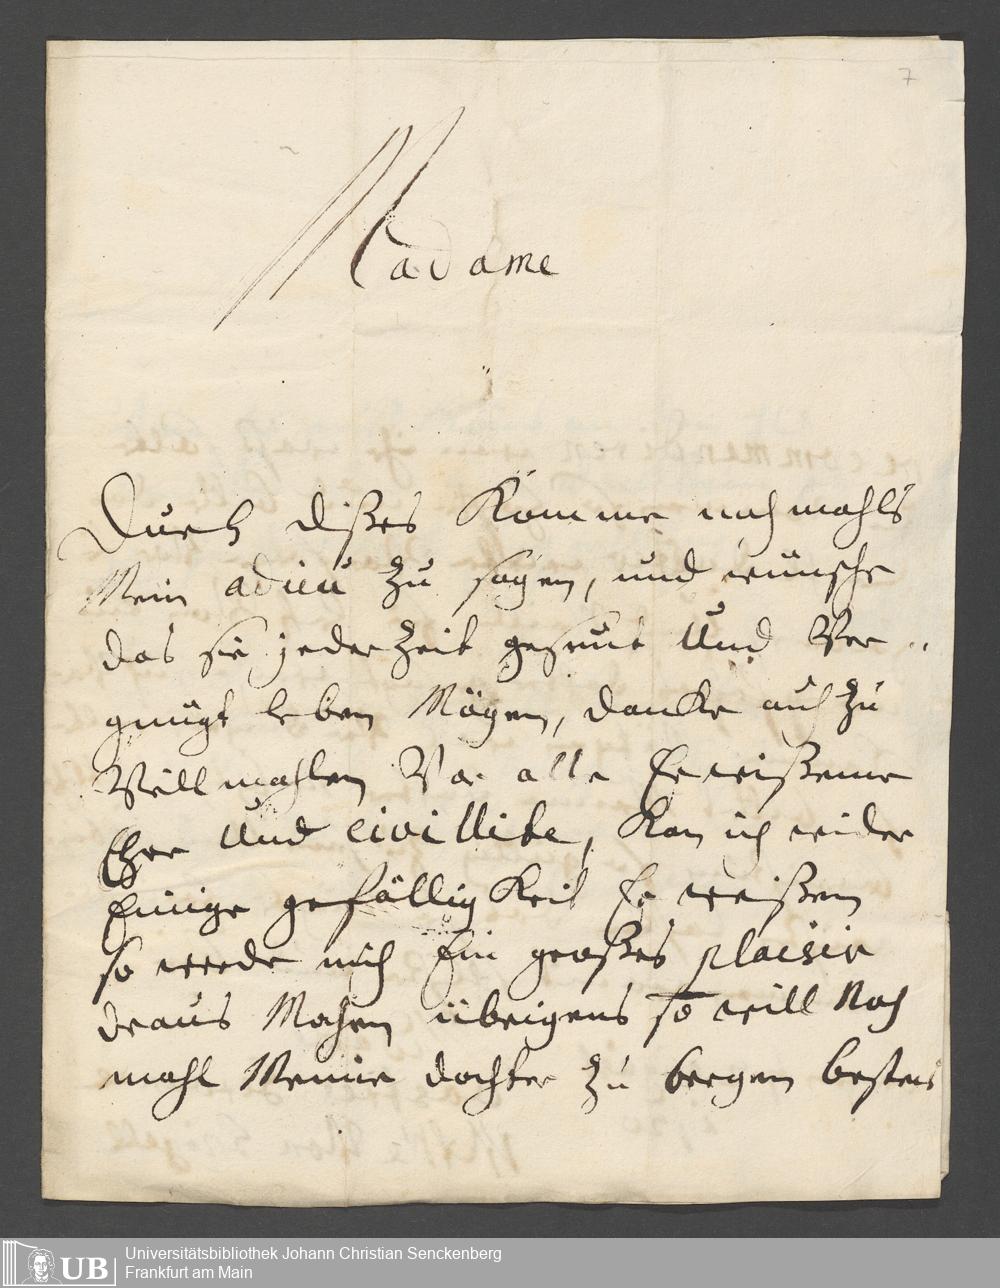 7
Madame
Durch dißes Komme nochmahls
Mein adieu zu sagen, und wünsche
das sie jeder Zeit gesunt Und Ver
gnügt leben Mögen, dancke auch zu
Villmahlen Vor alle Er weißene
Ehre Und civillite, Kan ich wider
Einige gefälligKeit Er weißen
so werde mich Ein großes plaisir
draus Machen übrigens so will Noch
mahl Meine dochter zu bergen bestens
UB
Universitätsbibliothek Johann Christian Senckenberg
Frankfurt am Main